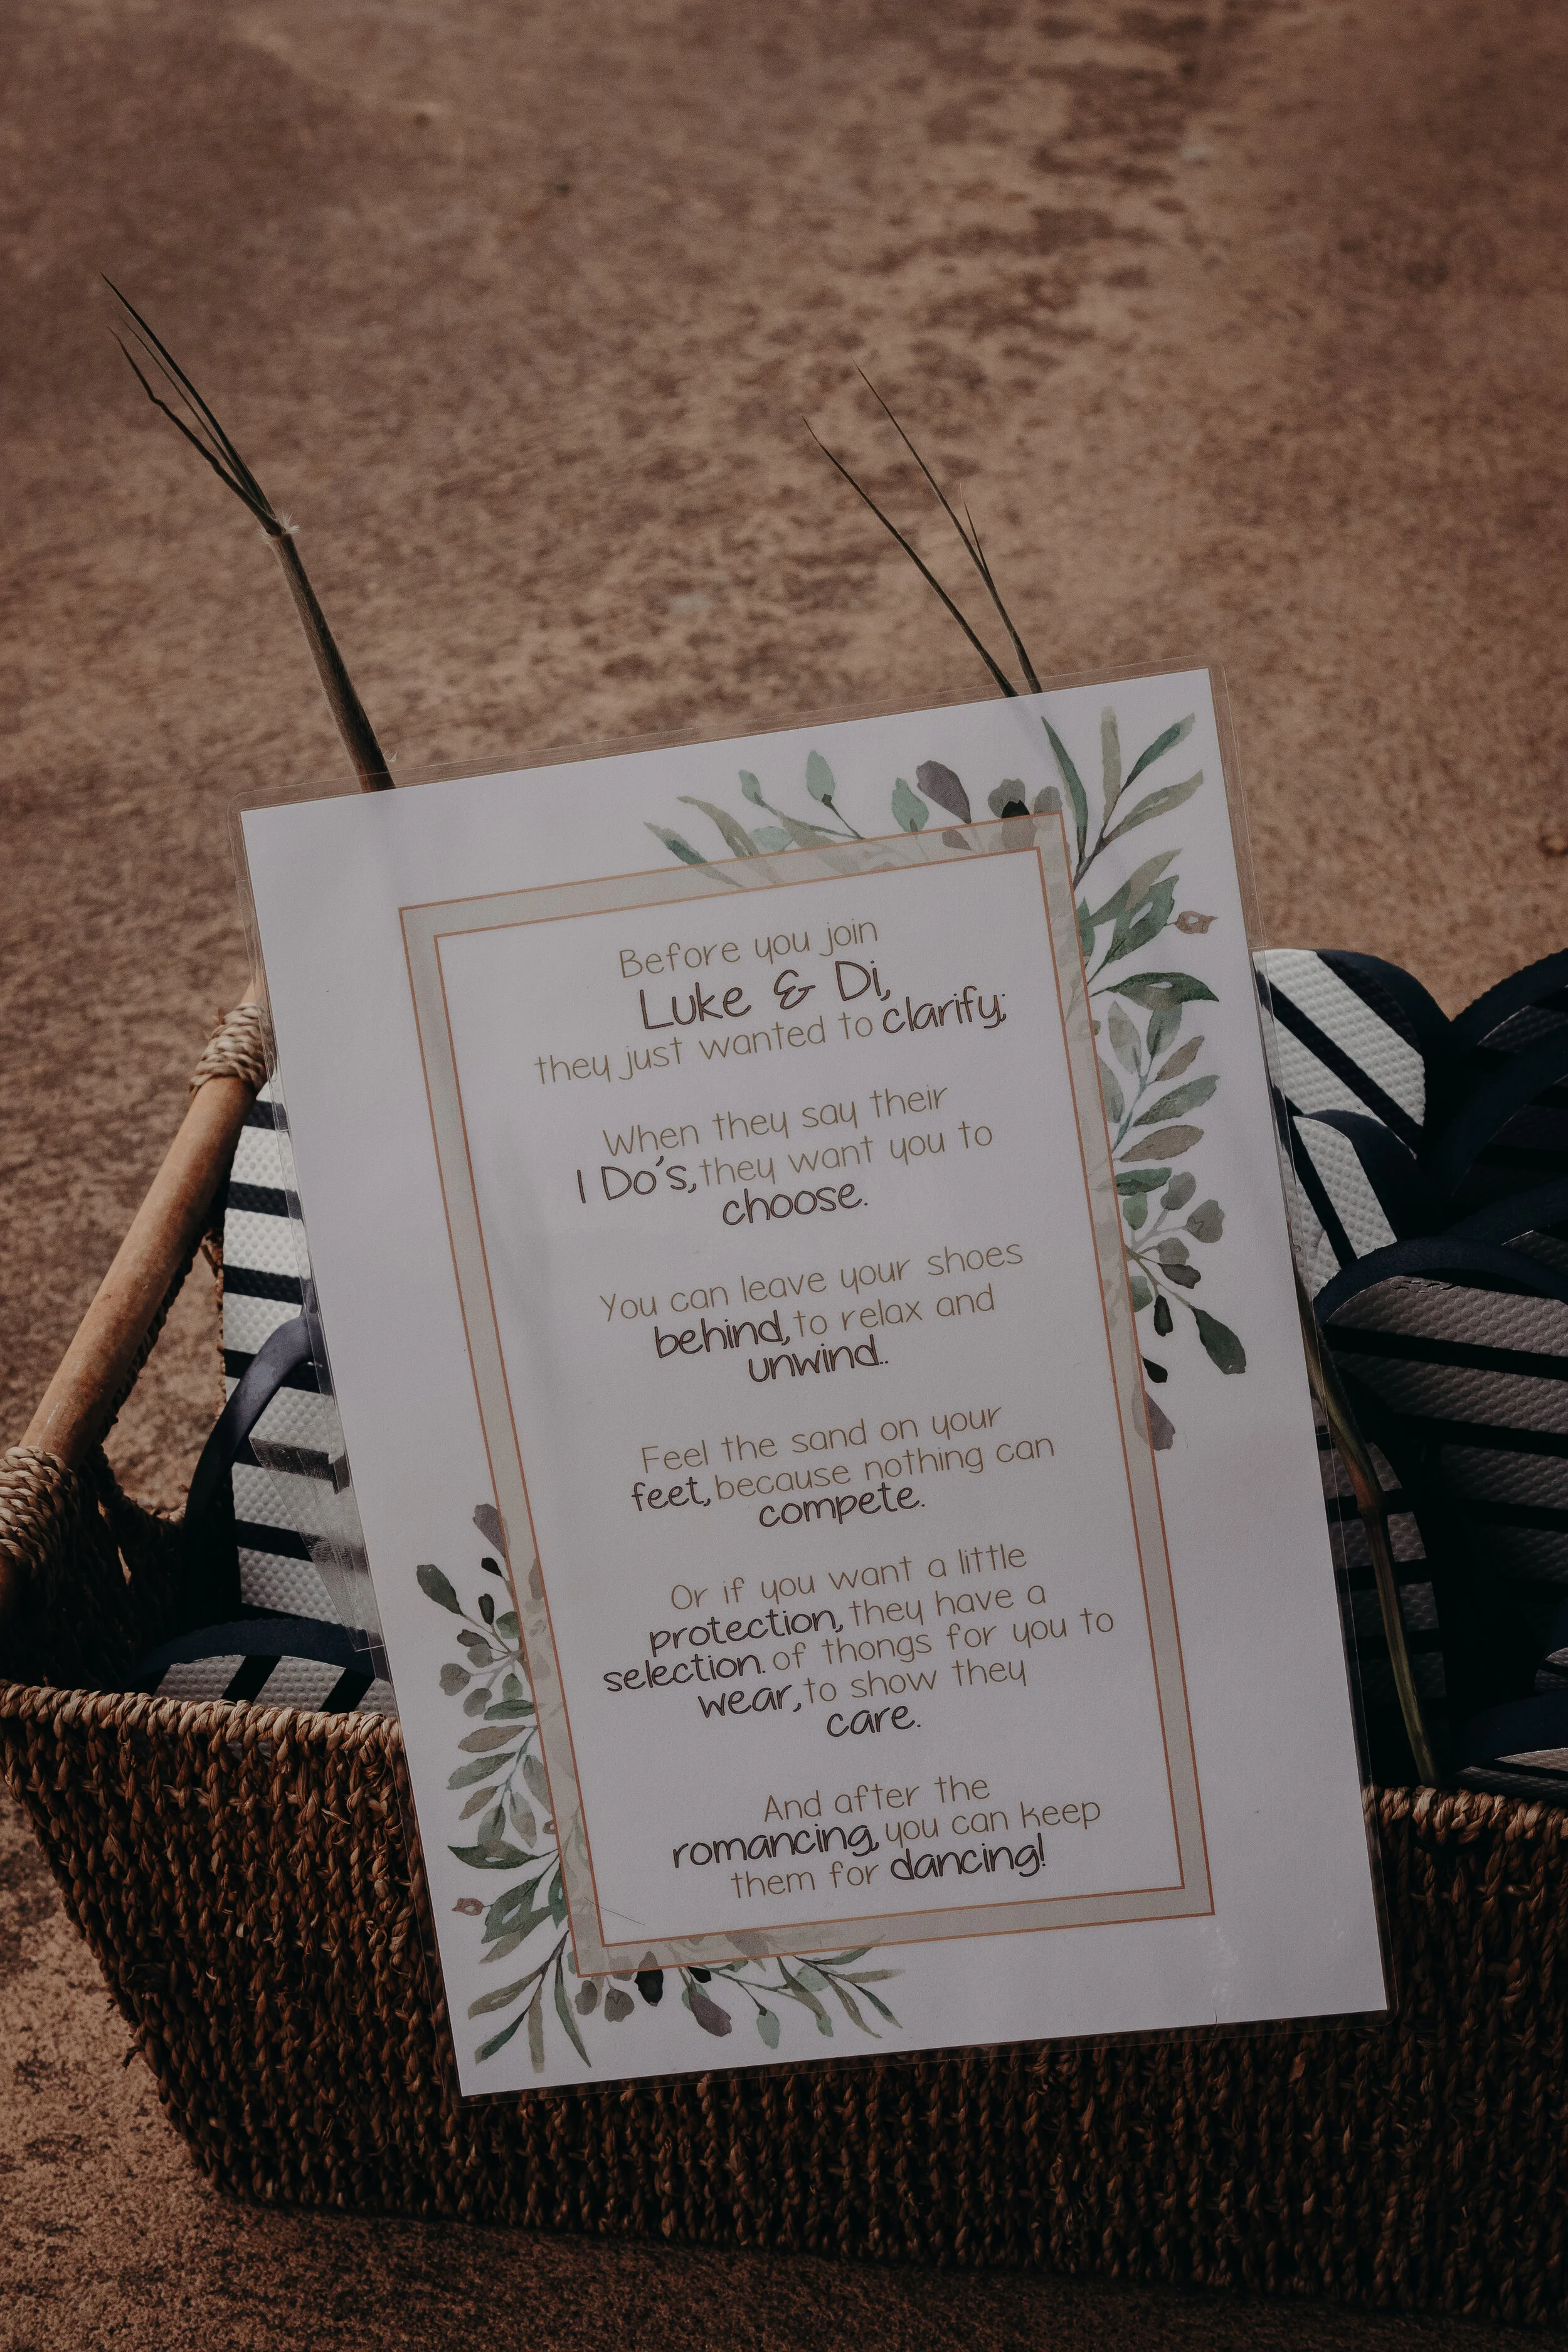 Before you join
Luke & Di,
they just wanted to clarify;
When they say their
I Do's, they want you to
choose.
You can leave your shoes
behind, to relax and
unwind..
Feel the sand on your
feet, because nothing can
compete.
Or if you want a little
protection, they have a
selection. of thongs for you to
wear, to show they
care.
And after the
romancing, you can keep
them for dancing!